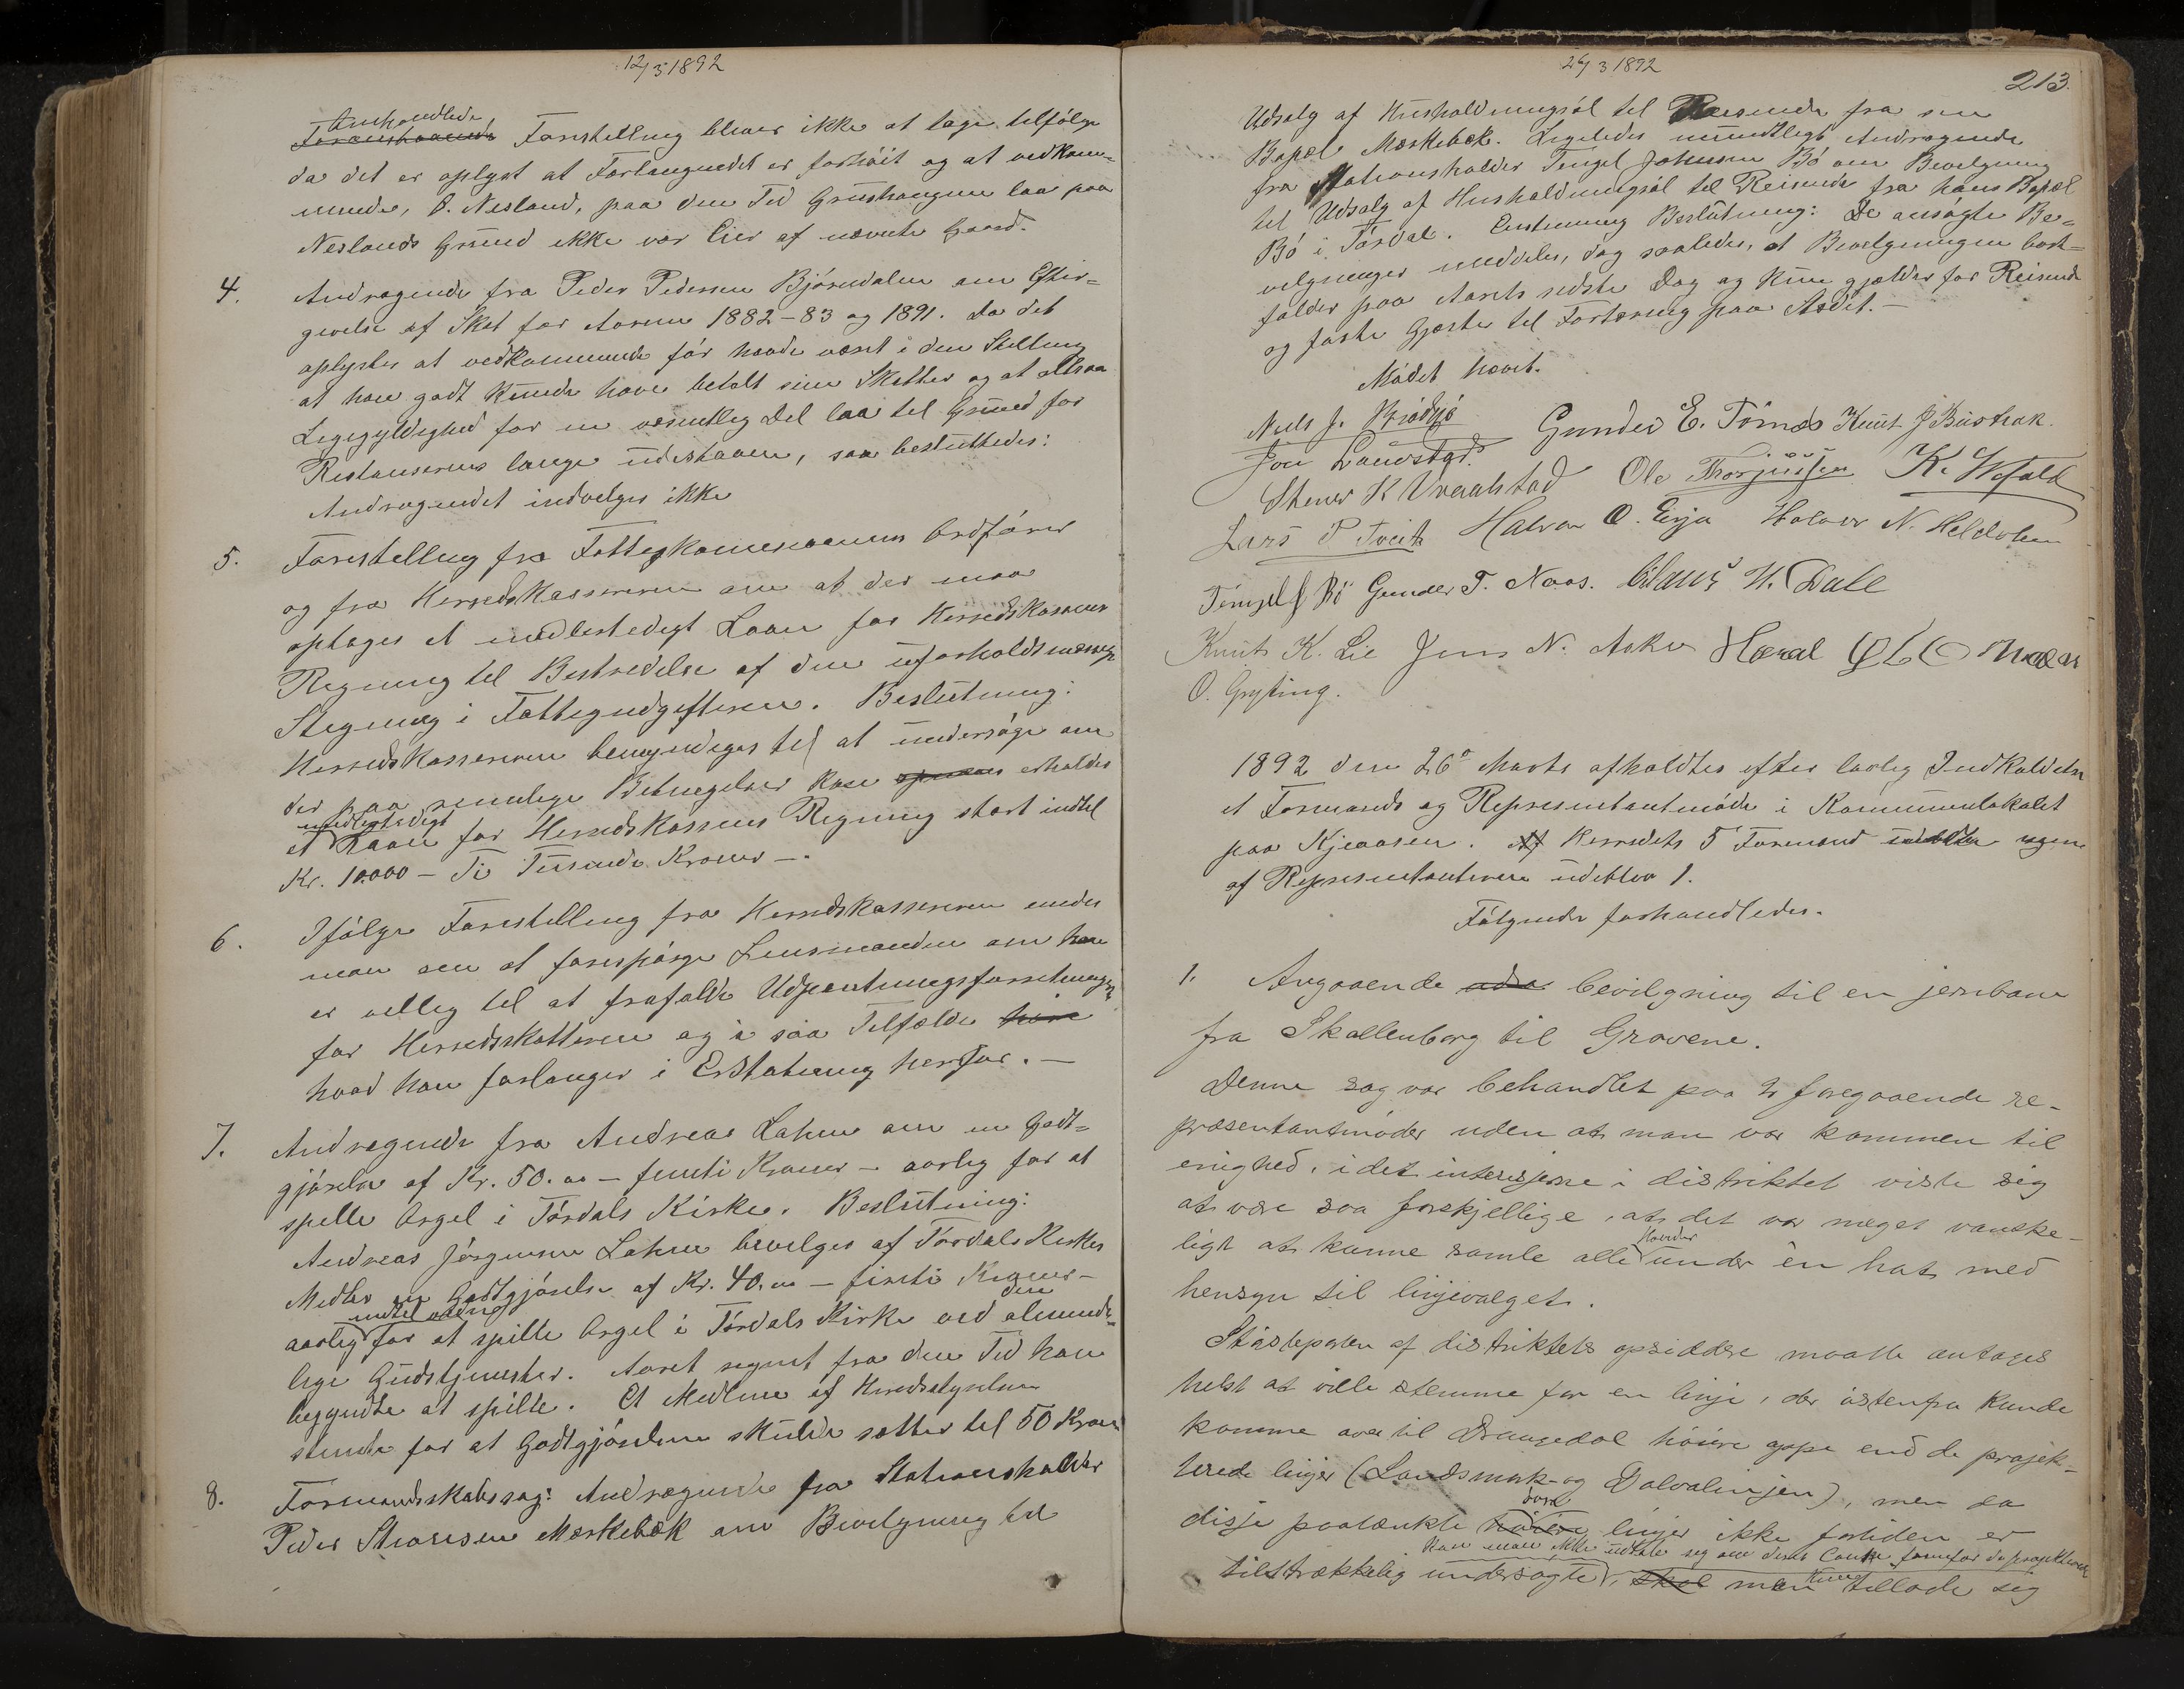 12/3 1892
Omhandlede
Foranstaaende Forestilling bliver ikke at tage tilfölge
da det er oplyst at Forlangendet er forhöit og at vedkom-
mende, O. Nesland, paa den Tid Grushaugen laa paa
Neslands Grund ikke var Eier af nævnte Gaard.
4. Andragende fra Peder Pedersen Björndalen om Efter-
givelse af Skat for Aarene 1882-83 og 1891. Da det
oplystes at vedkommende för havde været i den Stilling
at han godt kunde have betalt sine Skatter og at altsaa
Ligegyldighed for en væsentlig Del laa til Grund for
Restansernes lange Udestaaen, saa besluttedes:
Andragendet indvilges ikke
5. Forestilling fra Fattigkommissionens Ordförer
og fra Herredskassereren om at der maa
optages et midlertidigt Laan for Herredskassens
Regning til Bestridelse af den uforholdsmæssige
Stigning i Fattigudgifterne. Beslutning:
Herredskassereren bemyndiges til at undersöge om
der paa rimelige Betingelser kan erholdes
midlertidigt
et Laan for Herredskassens Regning stort indtil
Kr. 10000 - Ti Tusende Kroner -.
6. Ifölge Forestilling fra Herredskassereren enedes
man om at forespörge Lensmanden om han
er villig til at frafalde Udpantningsforretninger
for Herredsskatterne og i saa Tilfælde
hvad han forlanger i Erstatning herfor. -
7. Andragende fra Andreas Lahus om en Godt-
gjörelse af Kr. 50.00 - femti Kroner - aarlig for at
spille Orgel i Tördals Kirke. Beslutning:
Andreas Jörgensen Lahus bevilges af Tördals Kirkes
Midler en Godtgjörelse af Kr. 40.00 - firti Kroner -
indtil videre
den
aarlig for at spille Orgel i Tördals Kirke ved alminde-
lige Gudstjenester. Aaret regnet fra den Tid han
begyndte at spille. Et Medlem af Herredsstyrelsen
stemte for at Godtgjörelsen skulde sættes til 50 Kroner
8. Formandskabssag: Andragende fra Stationsholder
Peder Mærkebæk om Bevilgning til
26/3 1892
213.
Udsalg af Husholdningsöl til Reisende fra sin
Bopæl Mærkebæk. Ligeledes mundtligt Andragende
fra Stationsholder Tengel Johnsen Bö om Bevilgning
til Udsalg af Husholdningsöl til Reisende fra hans Bopæl
Bö i Tördal. Enstemmig Beslutning: De ansögte Be-
vilgninger meddeles, dog saaledes, at Bevilgningen bort-
falder paa Aarets sidste Dag og kun gjælder for Reisende
og faste Gjæster til Fortæring paa Stedet. -
Mödet hævet.
Niels J. Brödsjö Gunder E. Törnæs Knut J Bustrak.
Jon Landstad.
Stener K Vraalstad Ole Thorjussen K. Wefald
Lars P Tveit Halvor O. Eija Halvor N. Heldolen
Tengel J Bö Gunder T. Naas. Claus H. Dale
Knut K. Lie Jens N. Aske Haral
O. Gryting.
1892 den 26de Marts afholdtes efter lovlig Indkaldelse
et Formands og Representantmöde i Kommunelokalet
paa Kjeaasen. Af Herredets 5 Formænd udeblev ingen
af Representanterne udeblev 1.
Fölgende forhandledes.
1. Angaaende bevilgning til en jernbane
fra Skallenberg til Gravene.
Denne sag var behandlet paa 2 foregaaende re-
præsentantmöder uden at man var kommen til
enighed, idet interesserne i distriktet viste sig
at være saa forskjellige, at det var meget vanske-
Hoveder
ligt at kunne samle alle under én hat med
hensyn til linjevalget.
Störsteparten af distriktets opsiddere maatte antages
helst at ville stemme for en linje, der östenfra kunde
komme over til Drangedal höiere oppe end de projek-
terede linjer (Landsmark- og Dalvalinjen), men da
disse paatænkte höiere linjer ikke fortiden er
kan man ikke udtale sig om deres fremfor de projekterede
tilstrækkelig undersögte, skal man kun tillade sig